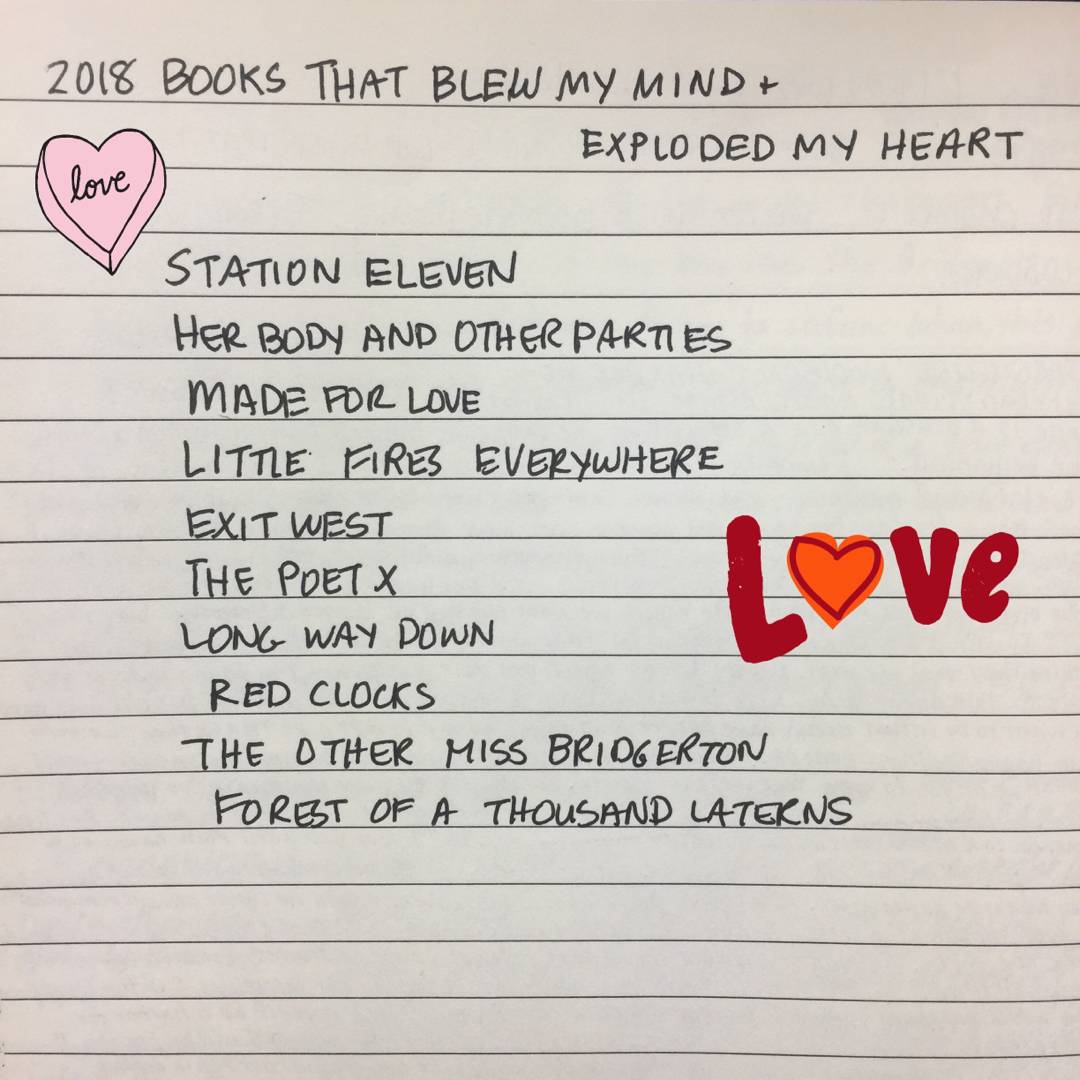 2018 BOOKS THAT BLEW MY MIND +
EXPLODED MY HEART
love
STATION ELEVEN
HER BODY AND OTHER PARTIES
MADE FOR LOVE
LITTLE FIRES EVERYWHERE
EXIT WEST
THE POET X
LONG WAY DOWN
RED CLOCKS
THE OTHER MISS BRIDGERTON
FOREST OF A THOUSAND LATERNS
Love